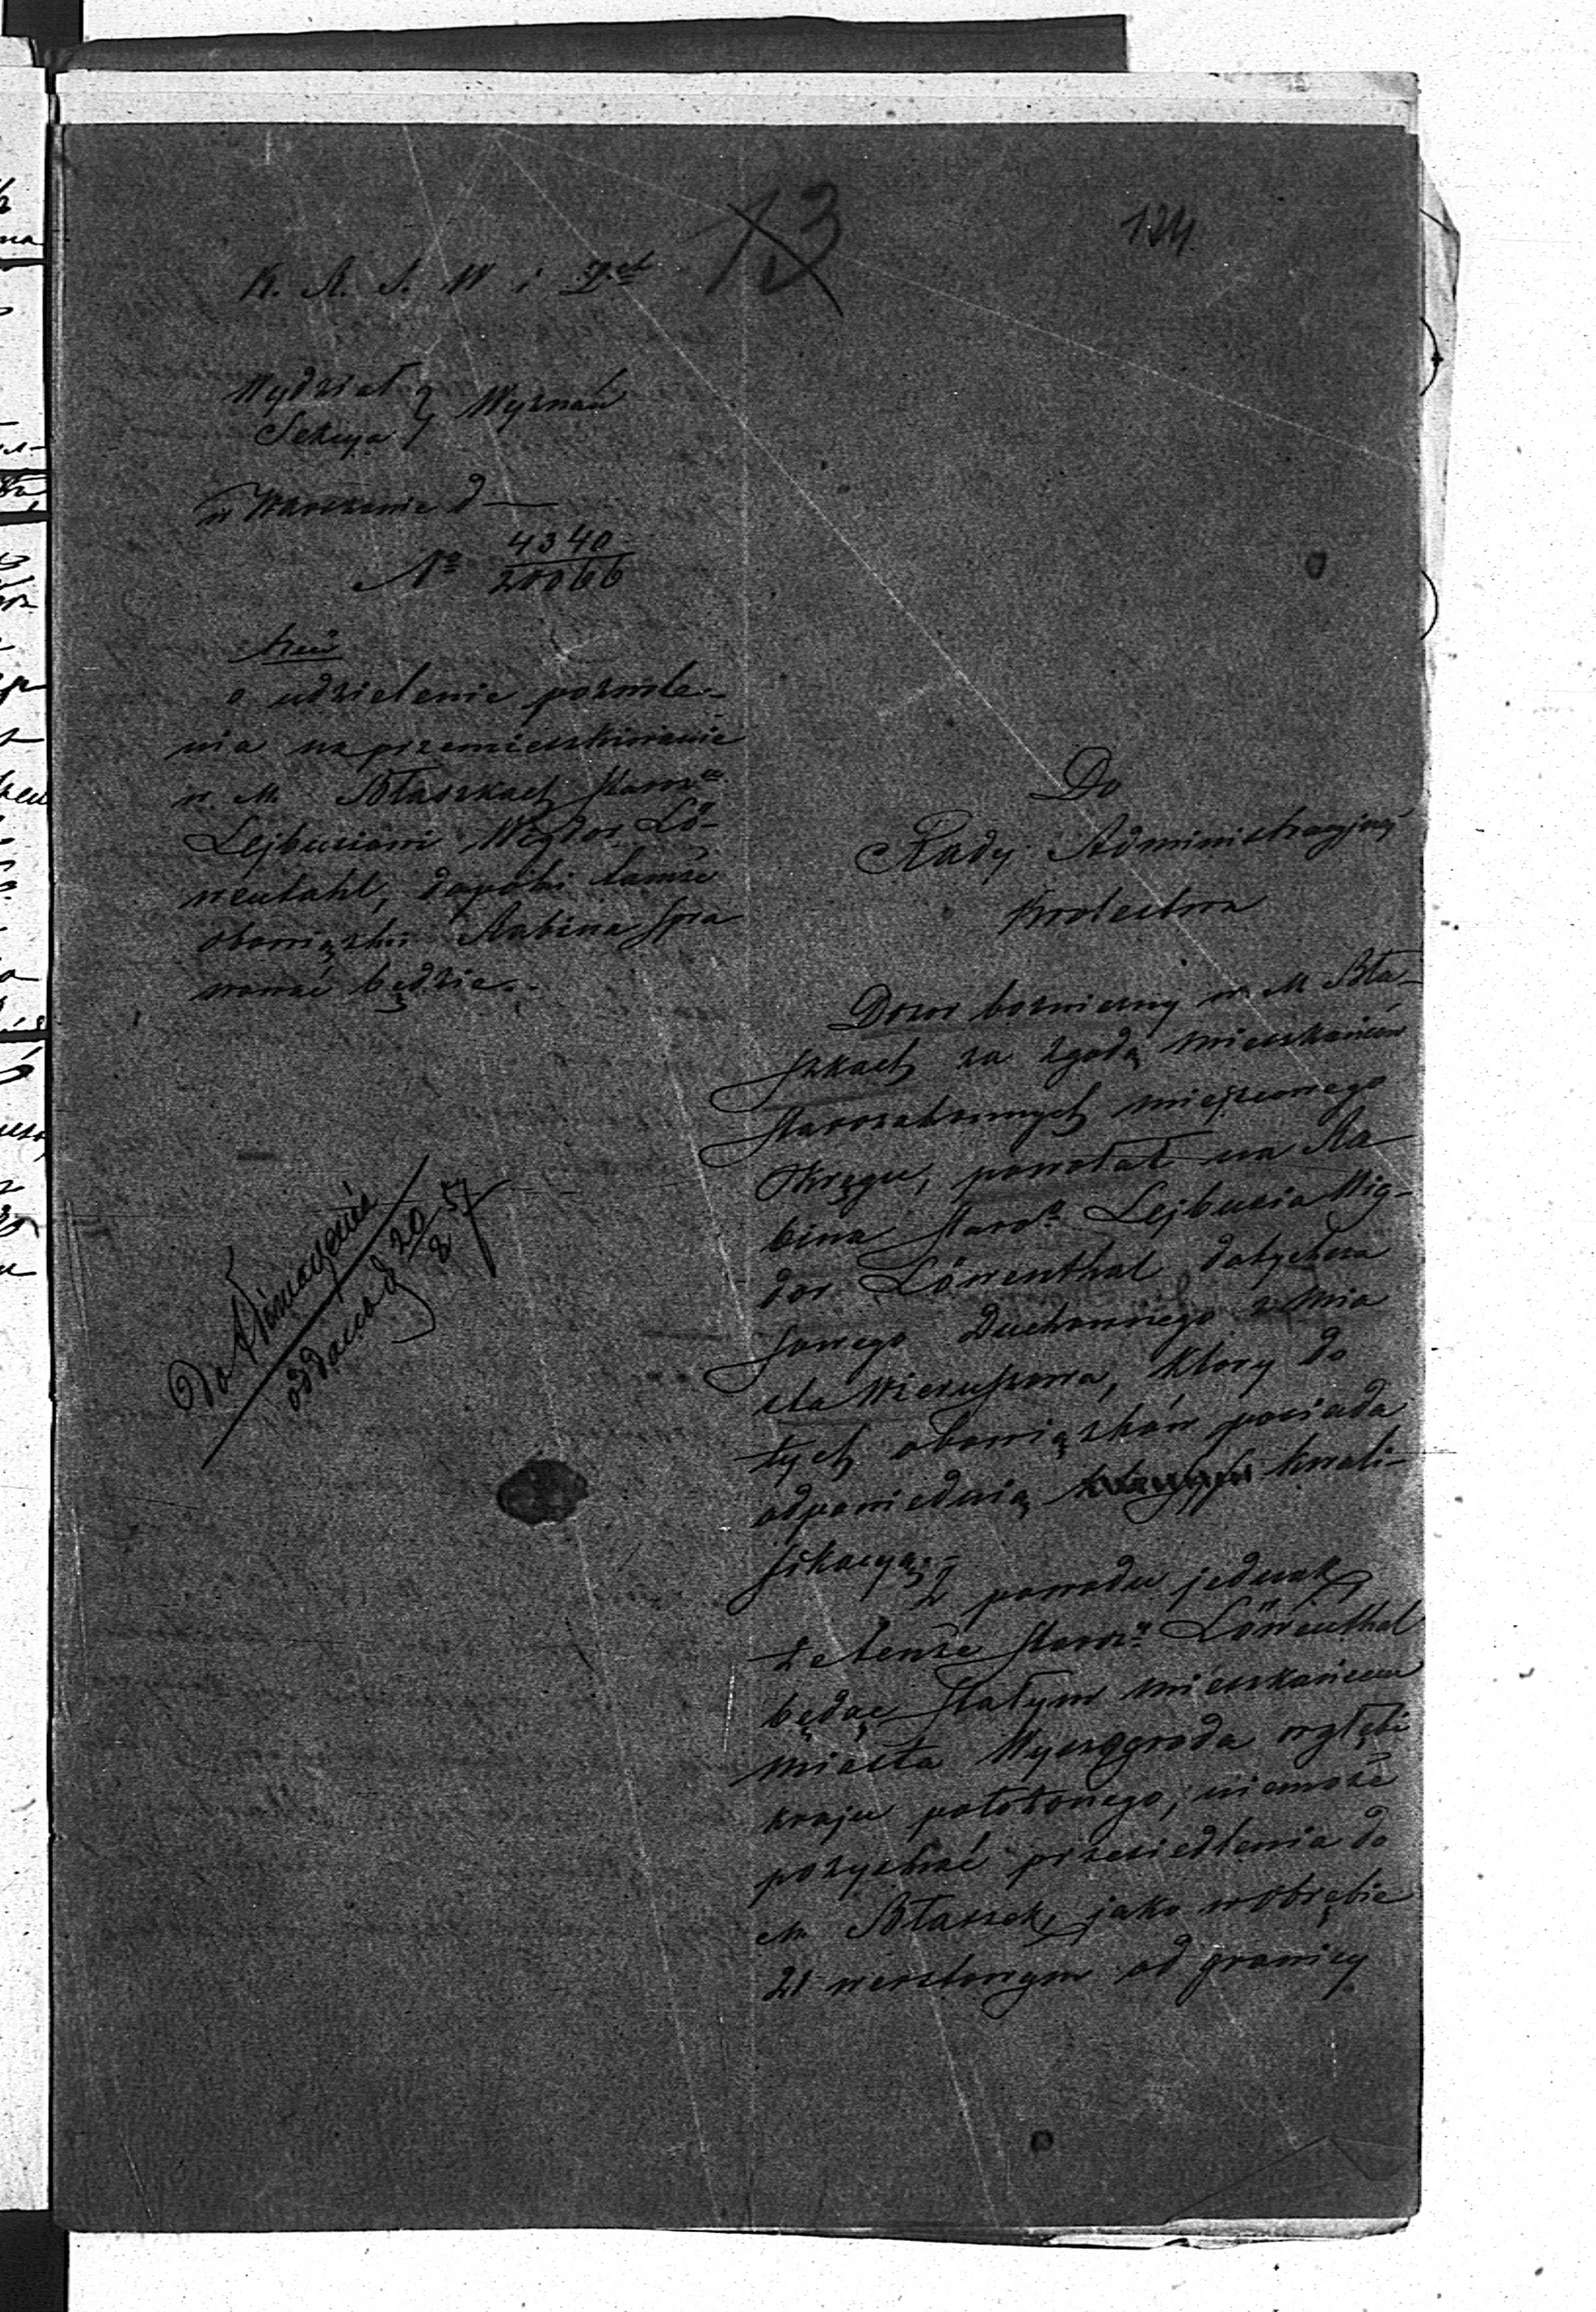 13
124
K. R. S. W i D.ch
Wydział } Wyznań
Sekcya
w Warszawie d —
No 4340
20066
treść
o udzielenie pozwole-
nia na przemieszkiwanie
w M. Błaszkach staroz.
Lejbusiowi Wigdor Lö-
wentahl, dopóki tamże
obowiązki Rabina spra
wować będzie.
Do tłómaczenia
oddano d 20/8 57
Do
Rady Administracyjnej
Królestwa
Dozor bożniczny w M Bła-
szkach za zgodą mieszkańców
starozakonnych miejscowego
Okręgu, powołał na Ra
bina staroz. Lejbusia Wig-
dor Löwenthal dotychcza
sowego Duchownego z Mia
sta Wieruszowa, który do
tych obowiązków posiada
odpowiednią kwali-
fikacyą.
Z powodu jednak
że tenże staroz. Löwenthal
będąc stałym mieszkańcem
miasta Wyszogroda w głębi
kraju położonego, niemoże
pozyskać przesiedlenia do
M Błaszek, jako w obrębie
21 werstowym od granicy